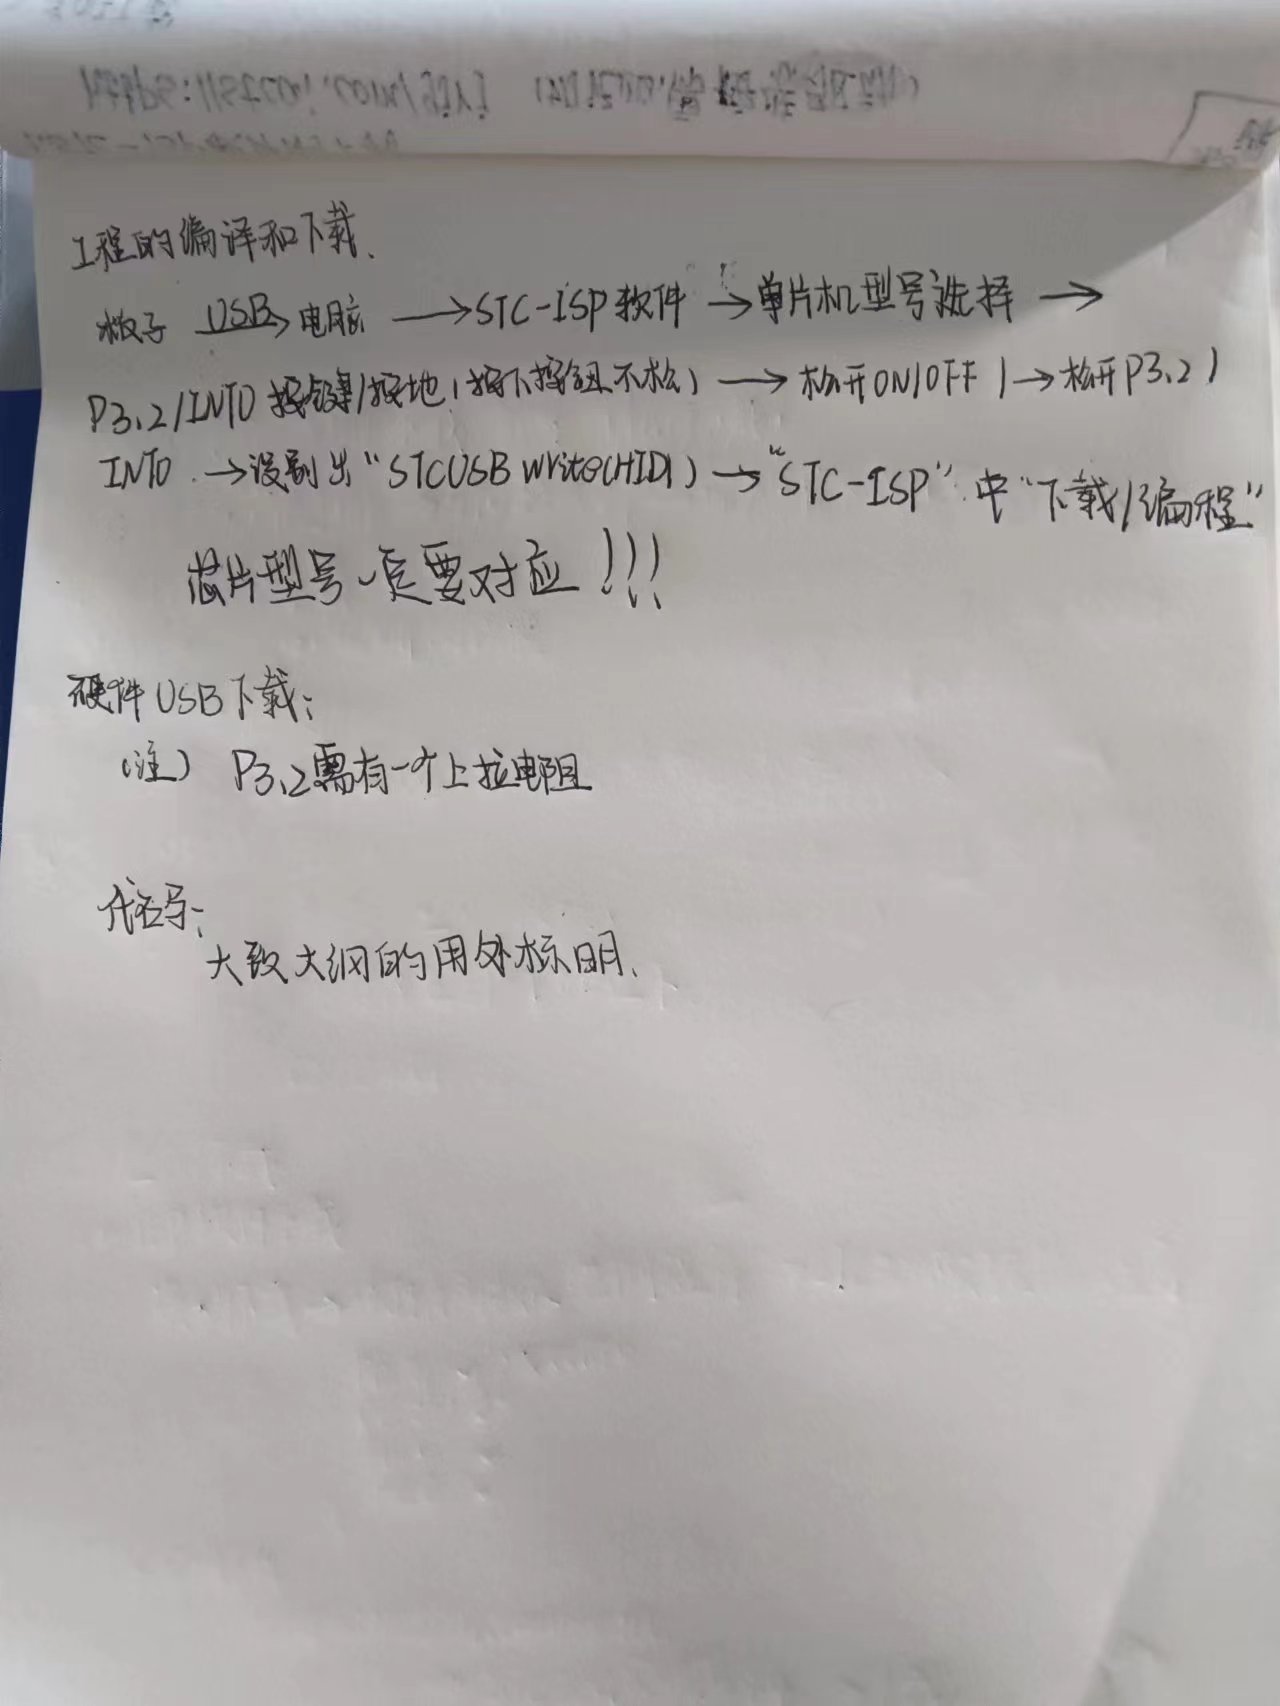 工程的编译和下载.
板子 USB→ 电脑 → STC-ISP软件 → 单片机型号选择 →
P3.2/INT0 按键/接地(按下按钮不松) → 松开ON/OFF | → 松开P3.2/
INT0 → 识别出 "STCUSB Write(HID1) → "STC-ISP" 中"下载/编程"
芯片型号一定要对应!!!
硬件USB下载:
(注) P3.2需有一个上拉电阻
大致大纲的用外标明.